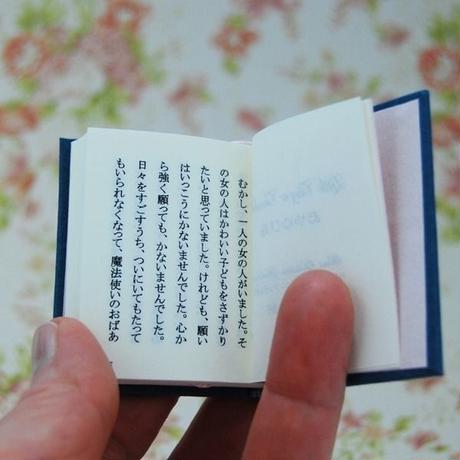 むかし、一人の女の人がいました。そ
の女の人はかわいい子どもをさずかり
たいと思っていました。けれども、願い
はいっこうにかないませんでした。心か
ら強く願っても、かないませんでした。
日々をすごすうち、ついにいてもたって
もいられなくなって、魔法使いのおばあ
おやゆび姫